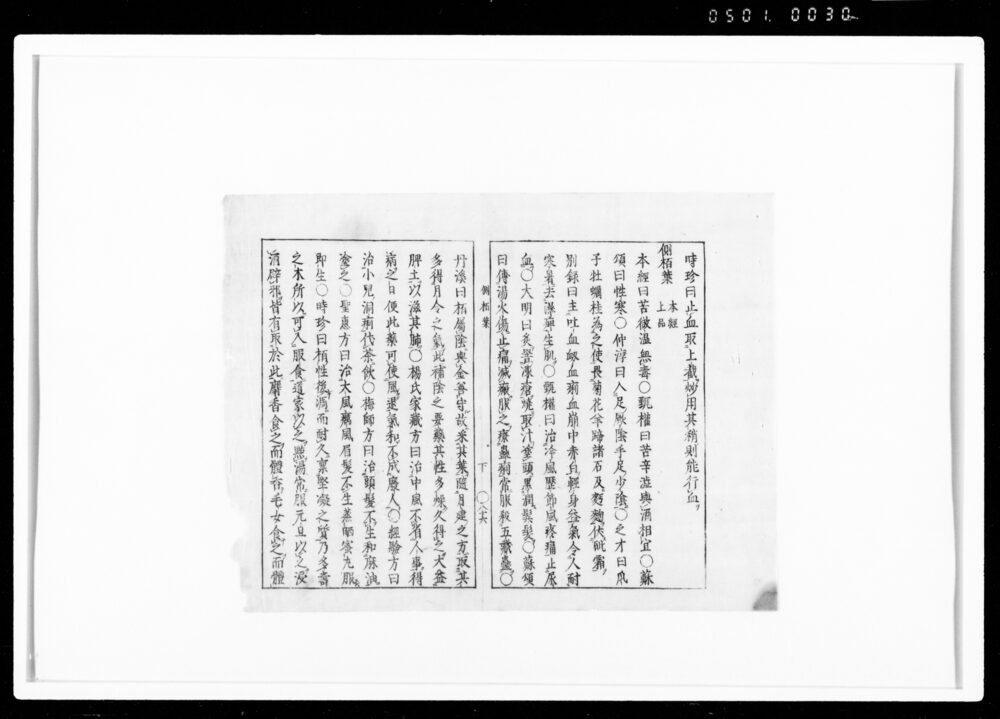 0501.0030
時珍曰止血取上截炒用其稍則能行血
側栢葉 本經上品
本經曰苦微溫無毒〇甄權曰苦辛澁與酒相宜〇蘇
頌曰性寒〇仲淳曰入足厥陰手足少陰〇之才曰瓜
子牡蠣桂為之使畏菊花羊蹄諸石及麪麴伏砒霜
別錄曰主吐血衂血痢血崩中赤白輕身益氣令人耐
寒暑去濕痺生肌〇甄權曰治冷風歷節風疼痛止尿
血〇大明曰炙罯凍瘡燒取汁塗頭黑潤鬢髮〇蘇頌
曰傅湯火傷止痛減瘢服之療蠱痢常服殺五臟蟲〇
側栢葉
下 〇八十六
丹溪曰栢屬陰與金善守故采其葉隨月建之方取其
多得月令之氣此補陰之要藥其性多燥久得之大益
脾土以滋其肺〇楊氏家藏方曰治中風不省人事得
病之日便此藥可使風退氣和不成廢人〇經驗方曰
治小兒洞痢代茶飲〇梅師方曰治頭髮不生和麻油
塗之〇聖惠方曰治大風癘風眉髮不生蒸晒蜜丸服
即生〇時珍曰栢性後凋而耐久稟堅凝之質乃多壽
之木所以可入服食道家以之點湯常服元旦以之浸
酒辟邪皆有取於此麝香食之而體香毛女食之而體